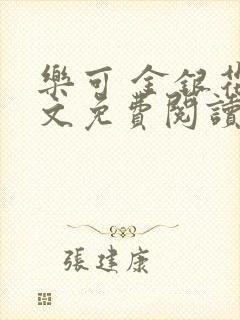 樂可 金銀花
文免費閱讀
張建康